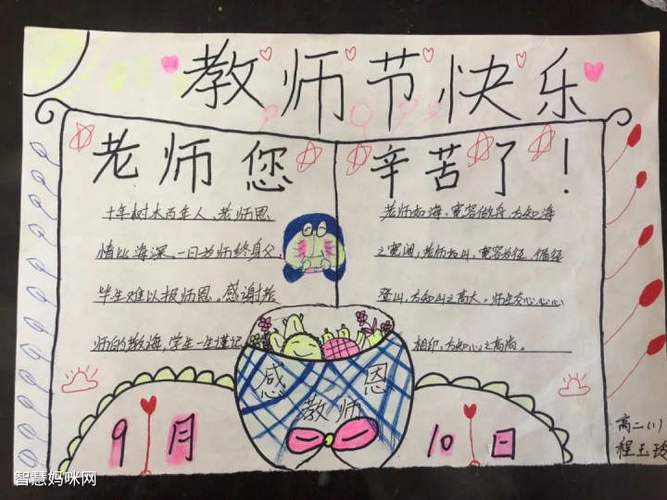 教师节快乐
老师您
辛苦了！
十年树木百年人，老师恩
情比海深。一日为师终身父，
毕生难以报师恩，感谢老
师的教诲，学生一生谨记。
老师如海，宽容做舟，方知海
之宽阔，老师如山，宽容为径，循径
登山，方知山之高大。师生交心心心
相印，方知心之高尚。
感恩
教师
9月
10日
高二(1)
程玉玲
智慧妈咪网